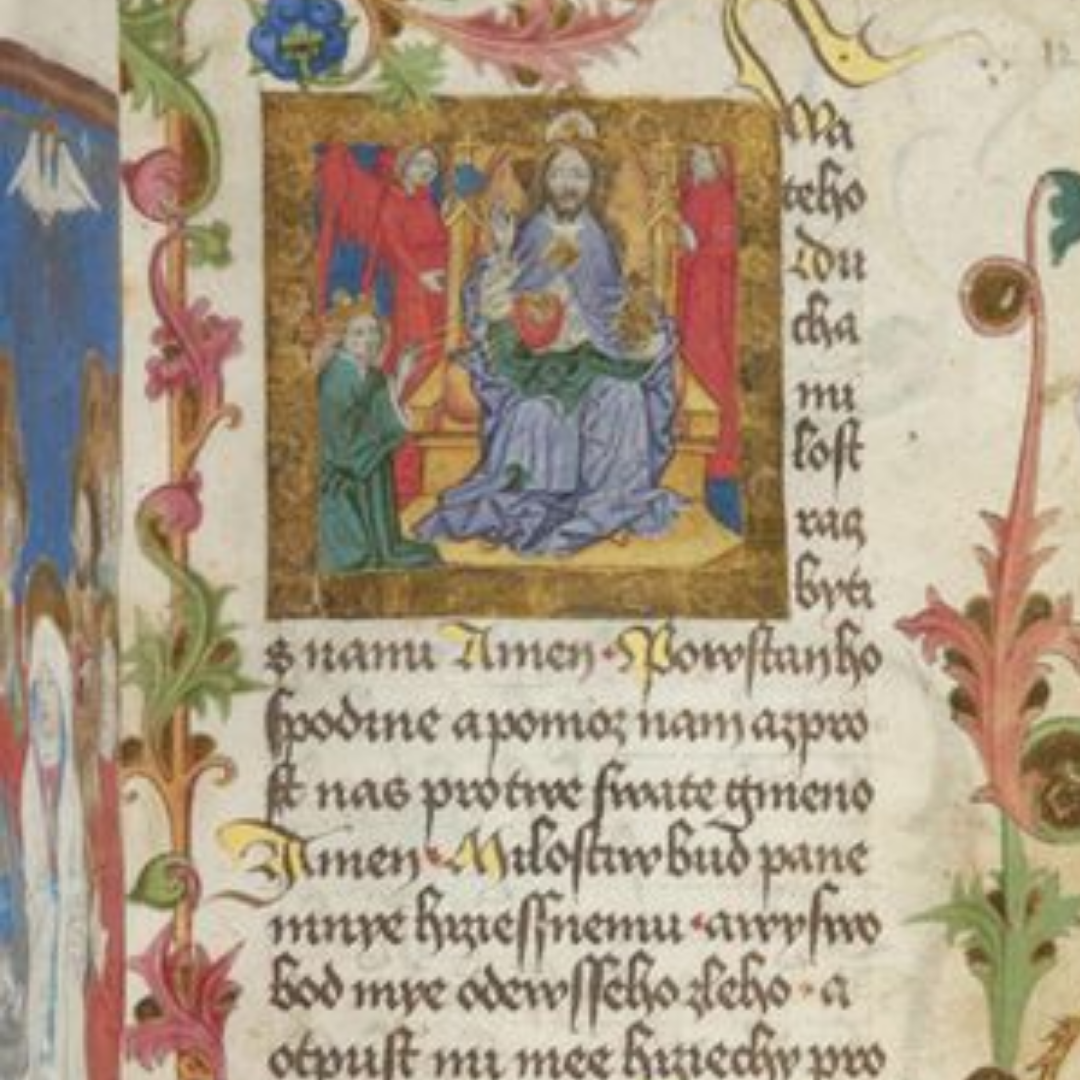 Swa
teho
Du
cha
mi
lost
racz
byti
s nami Amen Powstan ho
spodine a pomoz nam a zpro
st nas pro twe swate gmeno
Amen Milostiw bud pane
mnye hrziessnemu a wyswo
bod mye ode wsseho zleho a
otpust mi mee hrziechy pro